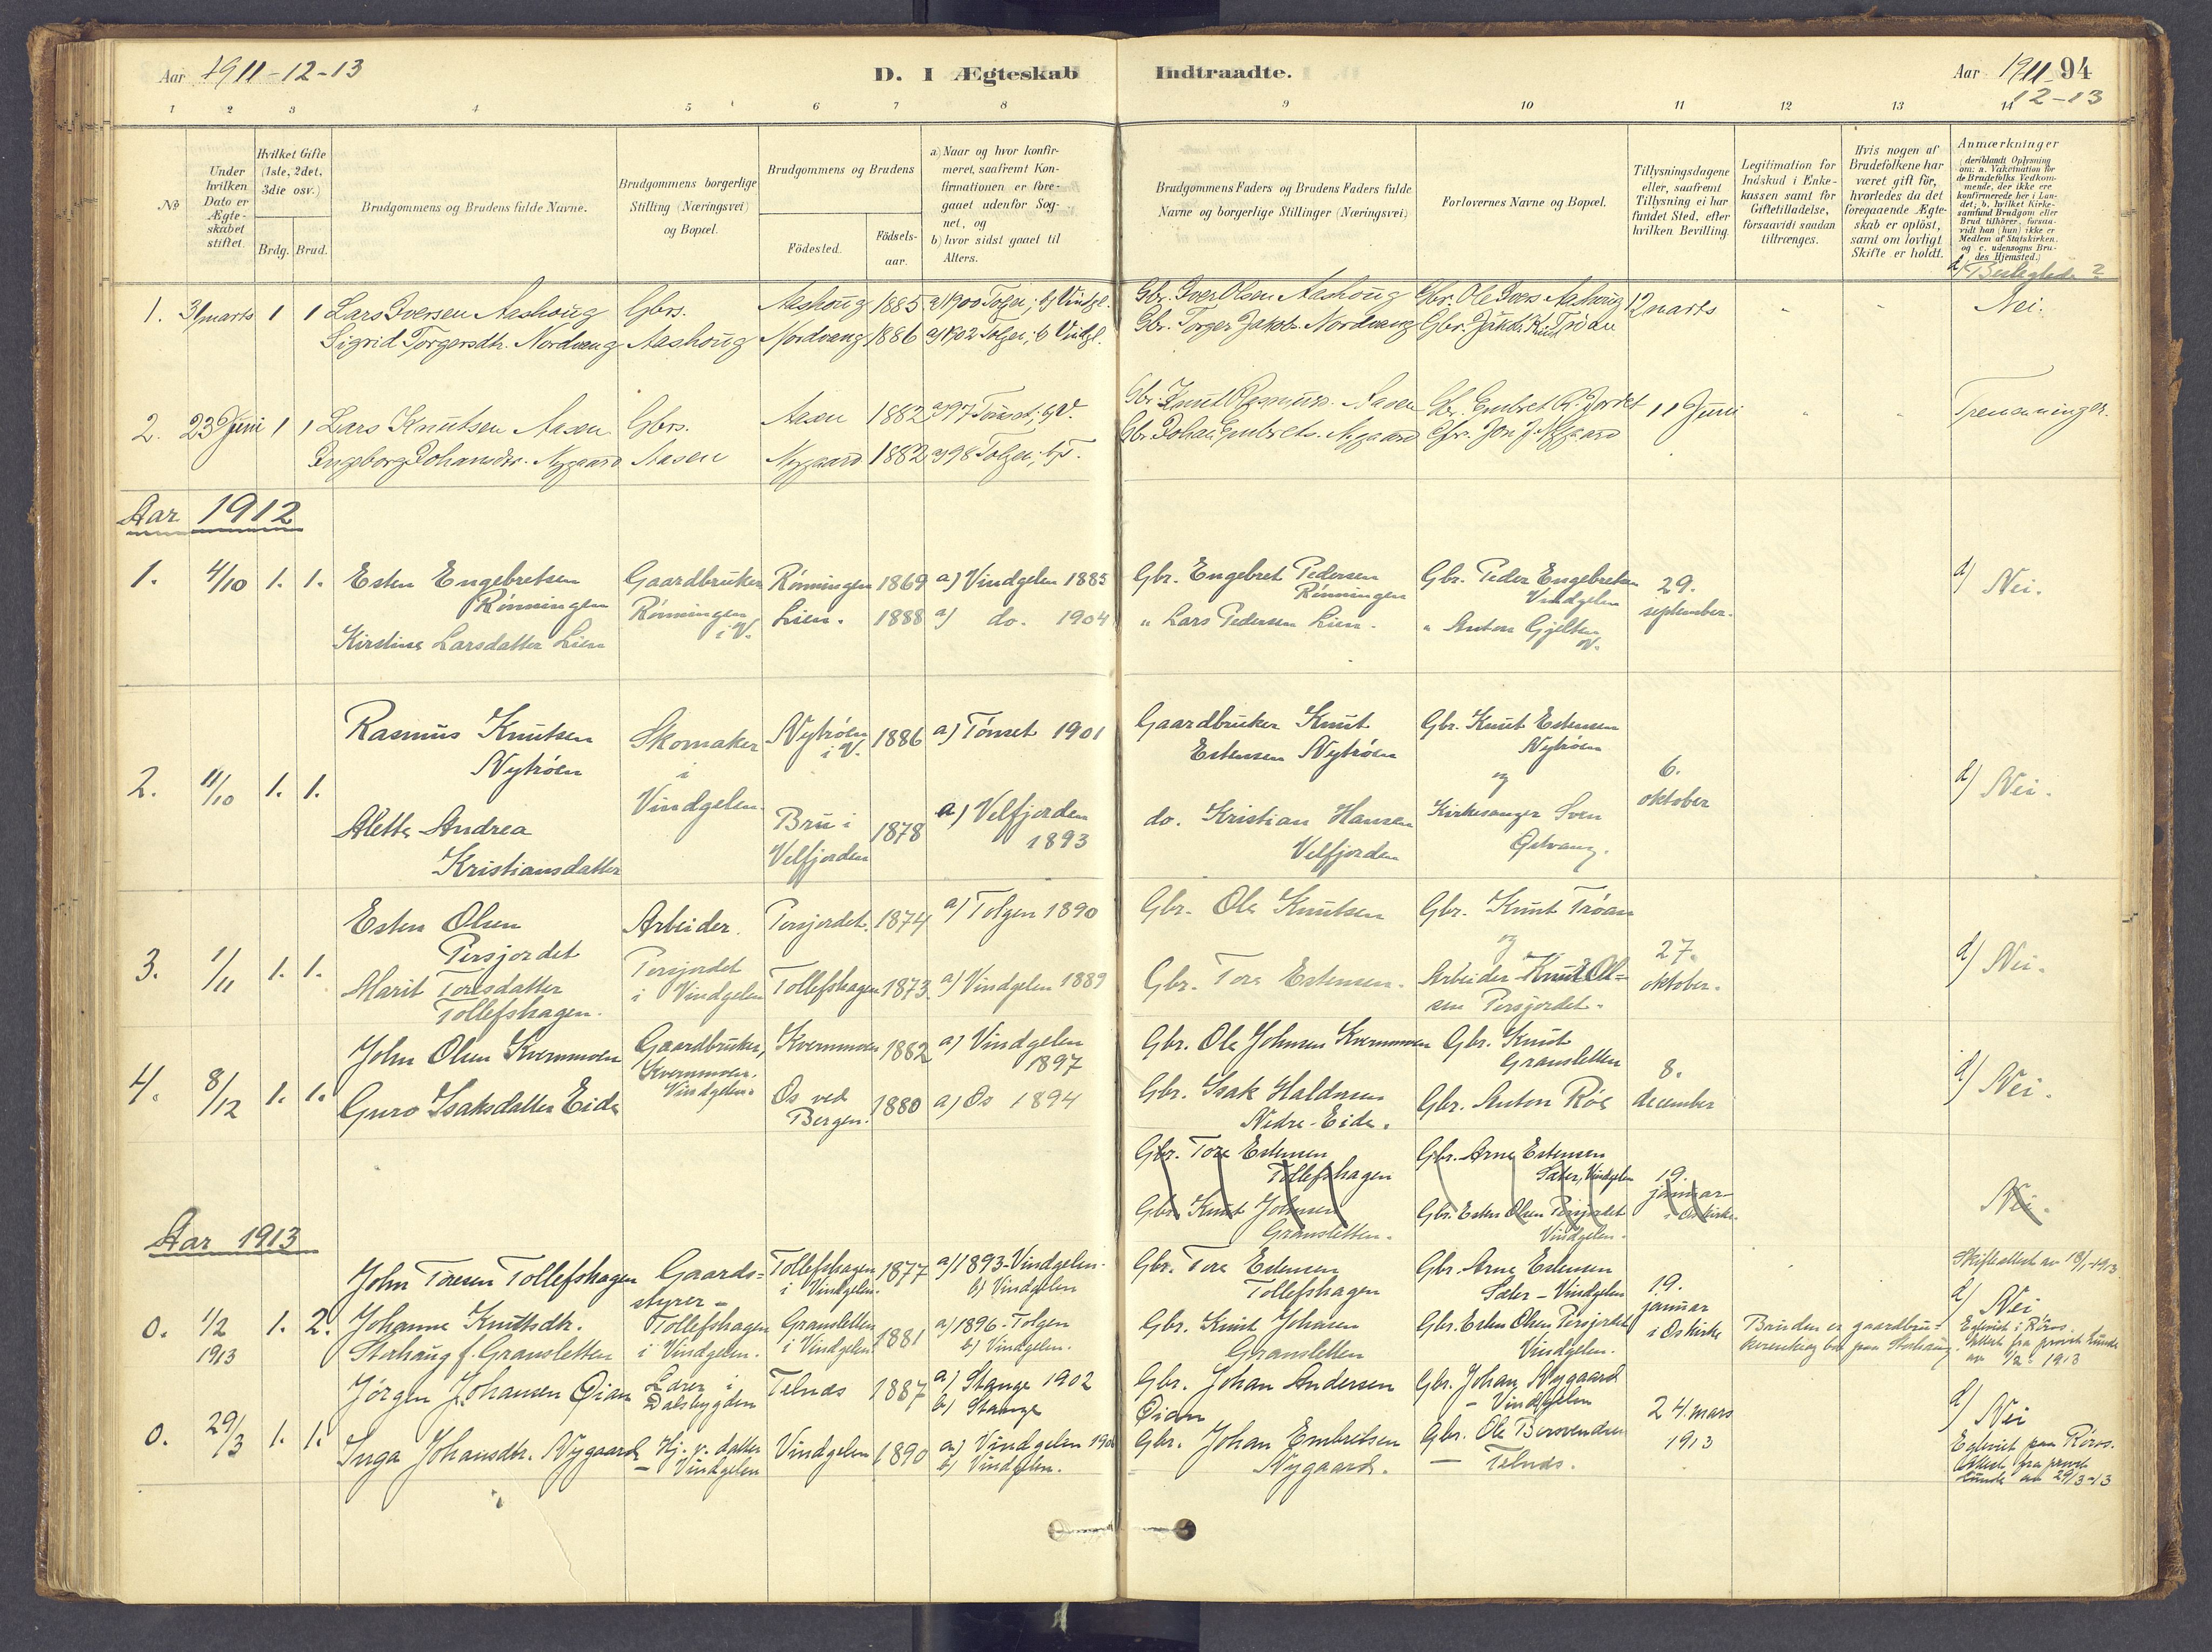 Aar 1911-12-13
D. I Ægteskab Indtraadte.
Aar 1911- 94
12-13
1 2 3 4 5 6 7 8 9 10 11 12 13 14
No
Under hvilken Dato er Ægteskabet stiftet.
Hvilket Gifte (1ste, 2det, 3die osv.)
Brdg. Brud.
Brudgommens og Brudens fulde Navne.
Brudgommens borgerlige Stilling (Næringsvei) og Bopæl.
Brudgommens og Brudens
Födested.
Födsels-aar.
a) Naar og hvor konfir-
meret, saafremt Kon-
firmationen er fore-
gaaet udenfor Sog-
net, og
b) hvor sidst gaaet til
Alters.
Brudgommens Faders og Brudens Faders fulde
Navne og borgerlige Stillinger (Næringsvei)
Forlovernes Navne og Bopæl.
Tillysningsdagene
eller, saafremt
Tillysning ei har
fundet Sted, efter
hvilken Bevilling.
Legitimation for
Indskud i Enke-
kassen samt for
Giftetilladelse,
forsaavidt saadan
tiltrænges.
Hvis nogen af
Brudefolkene har
været gift för,
hvorledes da det
foregaaende Ægte-
skab er oplöst,
samt om lovligt
Skifte er holdt.
Anmærkninger
(deriblandt Oplysning
om: a. Vakcination for
de Brudefolks Vedkom-
mende, der ikke ere
konfirmerede her i Lan-
det; b. hvilket Kirke-
samfund Brudgom eller
Brud tilhörer, forsaa-
vidt han (hun) ikke er
Medlem af Statskirken.
og c. udensogns Bru-
des Hjemsted.)
d) Beslegtede?
1. 31 marts 1 1 Lars Iversen Aashoug Gbrs. Aashoug 1885 a) 1900 Tolgen; b) Vindgl. Gbr. Iver Olsen Aashoug Gbr. Ole Ivers. Aashoug 12 marts Nei.
Sigrid Torgersdtr. Nordvang Aashoug Nordvang 1886 a) 1902 Tolgen; b Vindgl. Gbr. Torger Jakobs. Nordvang Gbr. Jakob Trøan
2. 23 Juni 1 1 Lars Knutsen Aasen Gbrs. Aasen 1882 a) 97 Tönset; b) V. Gbr. Knut Rasmuss. Aasen Gbr. Embret R. Jordet 11 Juni Tremenninger.
Ingeborg Johansdtr. Nygaard Aasen Nygaard 1882 a) 98 Tolgen; b) T. Gbr. Johan Embrets. Nygaard Gbr. Jon J. Nygaard
Aar 1912
1. 4/10 1. 1. Esten Engebretsen Gaardbruker Rönningen 1869 a) Vindgelen 1885 Gbr. Engebret Pedersen Gbr. Peder Engebretsen 29. d) Nei.
Rönningen Rönningen Lien. 1888 a) do. 1904 Rönningen Vindgelen september.
Kirstine Larsdatter Lien i V. " Lars Pedersen Lien. " Anton Gjelten V.
2. 11/10 1. 1. Rasmus Knutsen Skomaker Nytröen 1886 a) Tönset 1901 Gaardbruker Knut Gbr. Knut Estensen 6. d) Nei.
Nytröen i i V. Estensen Nytröen Nytröen oktober
Vindgelen. og
Alette Andrea Bru i 1878 a) Velfjorden do. Kristian Hansen Kirkesanger Sven
Kristiansdatter Velfjorden 1893 Velfjorden
3. 1/11 1. 1. Esten Olsen Arbeider. Persjordet. 1874 a) Tolgen 1890 Gbr. Ole Knutsen Gbr. Knut Tröan 27. d) Nei.
Persjordet Persjordet og oktober.
Marit Toresdatter i Vindgelen Tollefshagen 1873. a) Vindgelen 1889 Gbr. Tore Estensen. Arbeider Knut Ol-
Tollefshagen. sen Persjordet.
4. 8/12 1. 1. John Olsen Kvernmoen Gaardbruker, Kvernmoen 1882 a) Vindgelen Gbr. Ole Johnsen Kvernmoen Gbr. Knut 8. d) Nei.
Kvernmoen. 1897 Gransletten december
Guro Isaksdatter Eide Vindgelen. Os ved 1880 a) Os 1894 Gbr. Isak Haldorsen Gbr. Anton Röe
Bergen. Nedre-Eide.
Gbr. Tore Estensen Gbr. Arne Estensen 19.
Tollefshagen Sæter, Vindgelen januar Nei.
Gbr. Knut Johnsen Gbr. Esten Olsen Persjordet i Os kirke.
Gransletten. Vindgelen.
Aar 1913
0. 1/2 1913 1. 2. John Toresen Tollefshagen Gaards- Tollefshagen 1877 a) 1893-Vindgelen. Gbr. Tore Estensen Gbr. Arne Estensen 19. Skifteattest av 18/1-1913
styrer - i Vindgelen. b) Vindgelen Tollefshagen Sæter - Vindgelen januar d) Nei
Johanne Knutsdtr. Tollefshagen Gransletten 1881 a) 1896-Tolgen Gbr. Knut Johnsen Gbr. Esten Olsen Persjordet i Os kirke Bruden er gaardbru- Egteviet i Röros.
Storhaug f. Gransletten i Vindgelen. i Vindgelen b) Vindgelen. Gransletten Vindgelen. kerenke, paa Storhaug. Attest fra provst Lunde
av 1/2 1913
0. 29/3 1. 1. Jørgen Johansen Øian Lærer i Telnæs 1887 a) Stange 1902 Gbr. Johan Andersen Gbr. Johan Nygaard 24. mars d) Nei
Dalsbygden b) Stange Øian - Vindgelen 1913
Inga Johansdtr. Nygaard Hj. v. datter Vindgelen 1890 a) Vindgelen Gbr. Johan Embretsen Gbr. Ole Bersvendsen Egteviet paa Röros.
- Vindgelen b) Vindgelen. Nygaard. - Telnæs. Attest fra provst
Lunde av 29/3-13